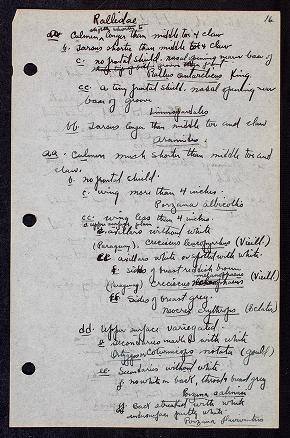 16
Rallidae
slightly shorter to
a. Culmen longer than middle toe & claw
b. Tarsus shorter than middle toe & claw
c. no frontal shield. nasal opening near base of
Rallus antarcticus King
cc. a tiny frontal shield. nasal opening near
base of groove
Limnopardalus
bb. Tarsus longer than middle toe and claw
Aramides
aa. Culmen much shorter than middle toe and
claw.
b. no frontal shield.
c. wing more than 4 inches.
Porzana albicollis
cc. wing less than 4 inches.
d. upper surface plain
e. axillars without white
(Paraguay). Creciscus leucopyrrhus (Vieill.)
ee. axillars white or spotted with white.
f. sides of breast reddish brown
(Paraguay) Creciscus melanophaius (Vieill)
ff. Sides of breast grey.
Neocrex erythrops (Sclater)
dd. upper surface variegated.
e. secondaries marked with white
Coturnicops notata (Gould)
ee. Secondaries without white
f. no white on back, throat & breast grey
Porzana salinasi
ff. Back streaked with white
undersurface partly white
Porzana flaviventris